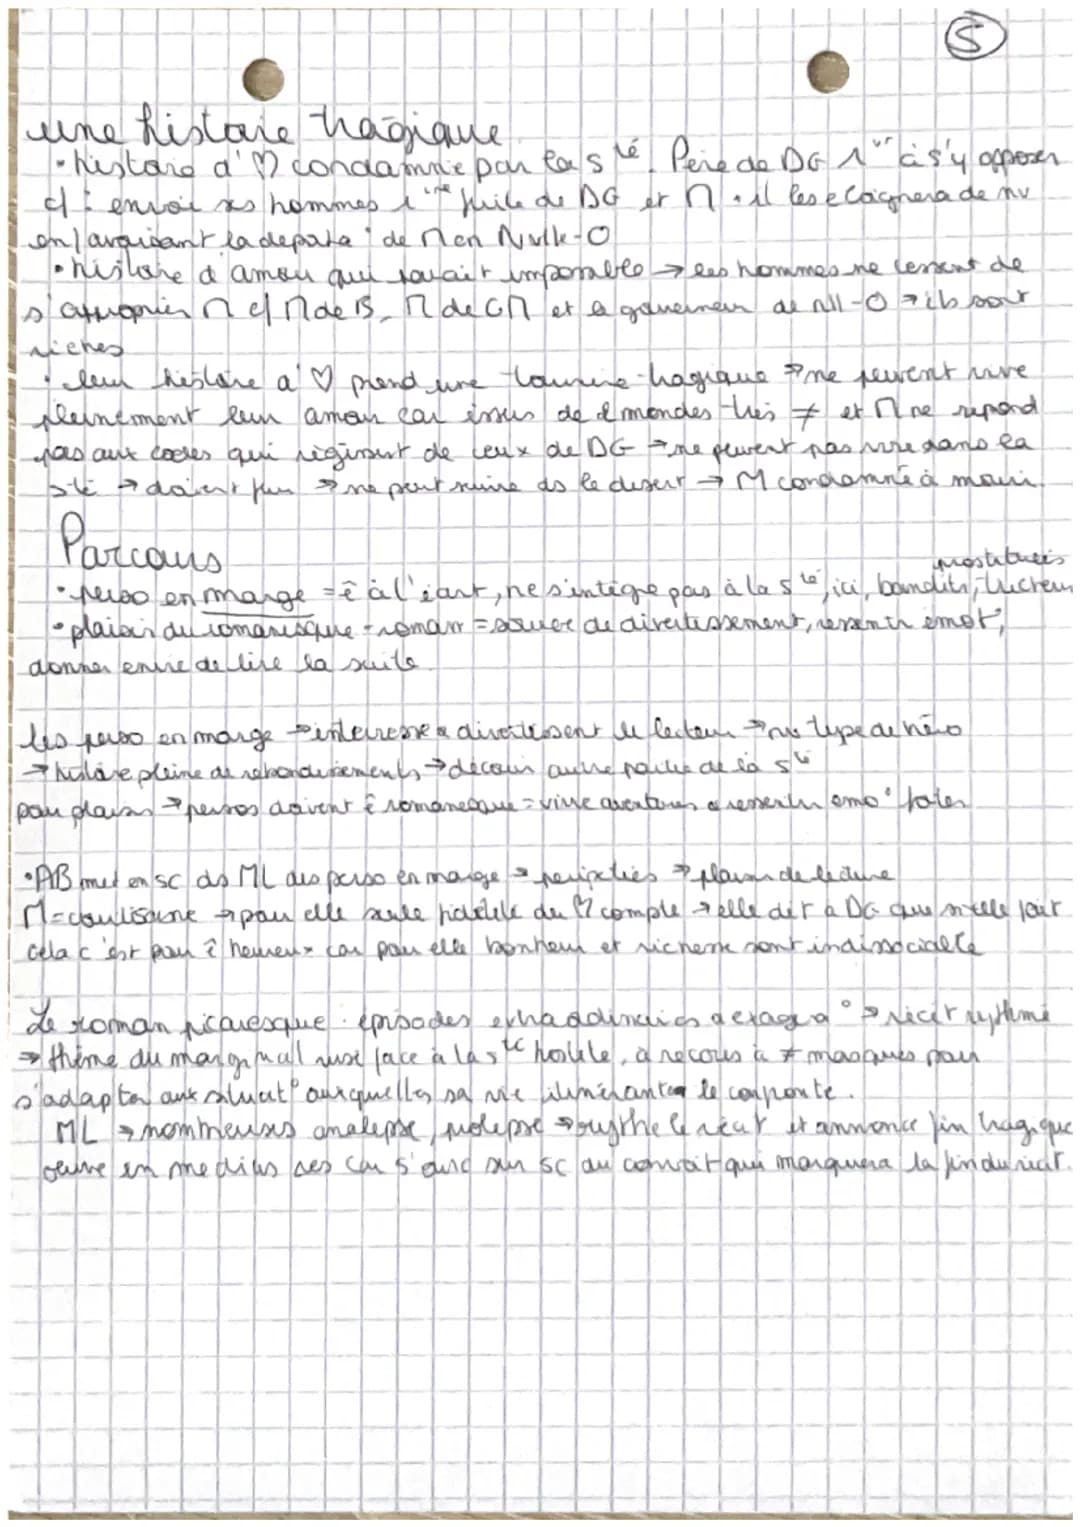 5
une histoire tragique
• histoire d'♡ condamnée par la sté. Père de DG 1er à s'y opposer
cf : envoi ses hommes 1ère fuite de DG et M. il les eloignera de nv
en organisant la déporta° de M en Nvlle-O
• histoire d'amour qui serait impossible → les hommes ne cessent de
s'approprier M cf M de B, M de GM et le gouverneur de nll-O → ils sont
riches
• leur histoire d'♡ prend une tournure tragique → ne peuvent vivre
pleinement leur amour car issus de 2 mondes très ≠ et M ne repond
pas aux codes qui régissent de ceux de DG → ne peuvent pas vivre dans la
sté → doivent fuir → ne peut suivre ds le desert → M condamnée à mourir.
Parcours
prostituées
• perso en marge = ê à l'écart, ne s'intègre pas à la sté, ici, bandits, tricheurs
• plaisir du romanesque - roman = source de divertissement, ressentir émot°,
donner envie de lire la suite.
les perso en marge → interesse & divertissent le lecteur → nv type de héro
→ histoire pleine de rebondissements → décour autre partie de la sté
pour plaisir → persos doivent ê romanesque = vivre aventures & ressentir emo° fortes
• AB met en sc ds ML des perso en marge → peripéties → plaisir de lecture
M = courtisane → pour elle seule fidélité du ♡ compte → elle dit à DG que si elle fait
cela c'est pour ê heureux car pour elle bonheur et richesse sont indissociable
Le roman picaresque : épisodes extraordinaires & exagéra° → récit rythmé
→ thème du marginal rusé face à la sté hostile, a recours à ≠ masques pour
s'adapter aux situat° auxquelles sa vie itinérante le confronte.
ML → nombreuses analepse, prolepse → rythme le récit et annonce fin tragique
oeuvre in medias res car s'ouvre sur sc du convoi qui marquera la fin du récit.